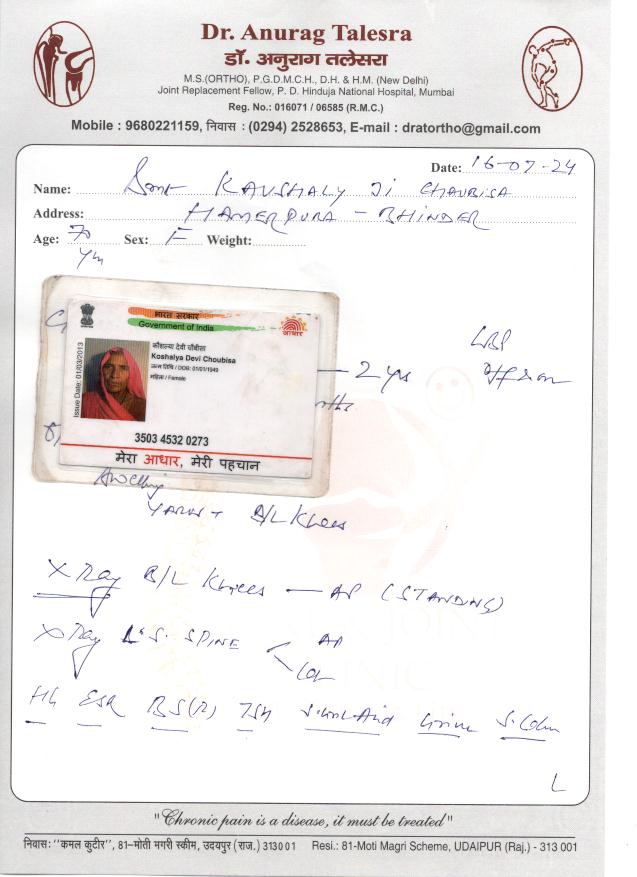 Dr. Anurag Talesra
डॉ. अनुराग तलेसरा
M.S.(ORTHO), P.G.D.M.C.H., D.H. & H.M. (New Delhi)
Joint Replacement Fellow, P. D. Hinduja National Hospital, Mumbai
Reg. No.: 016071 / 06585 (R.M.C.)
Mobile : 9680221159, निवास : (0294) 2528653, E-mail : dratortho@gmail.com
Date: 16-07-24
Name: Smt KAUSHALY JI CHAUBISA
Address: HAMERPURA - BHINDER
Age: 70 Sex: F Weight:
भारत सरकार
Government of India
आधार
Issue Date: 01/03/2013
कौशल्या देवी चौबीसा
Koshalya Devi Choubisa
जन्म तिथि / DOB: 01/01/1949
महिला / Female
3503 4532 0273
मेरा आधार, मेरी पहचान
LBP
— 2 yrs
Varus + B/L Knees
X Ray B/L Knees — AP (STANDING)
X Ray L.S. SPINE AP
Hb ESR BS(R) TSH S. Uric Acid Urine
"Chronic pain is a disease, it must be treated"
निवास: "कमल कुटीर", 81-मोती मगरी स्कीम, उदयपुर (राज.) 313001 Resi.: 81-Moti Magri Scheme, UDAIPUR (Raj.) - 313 001